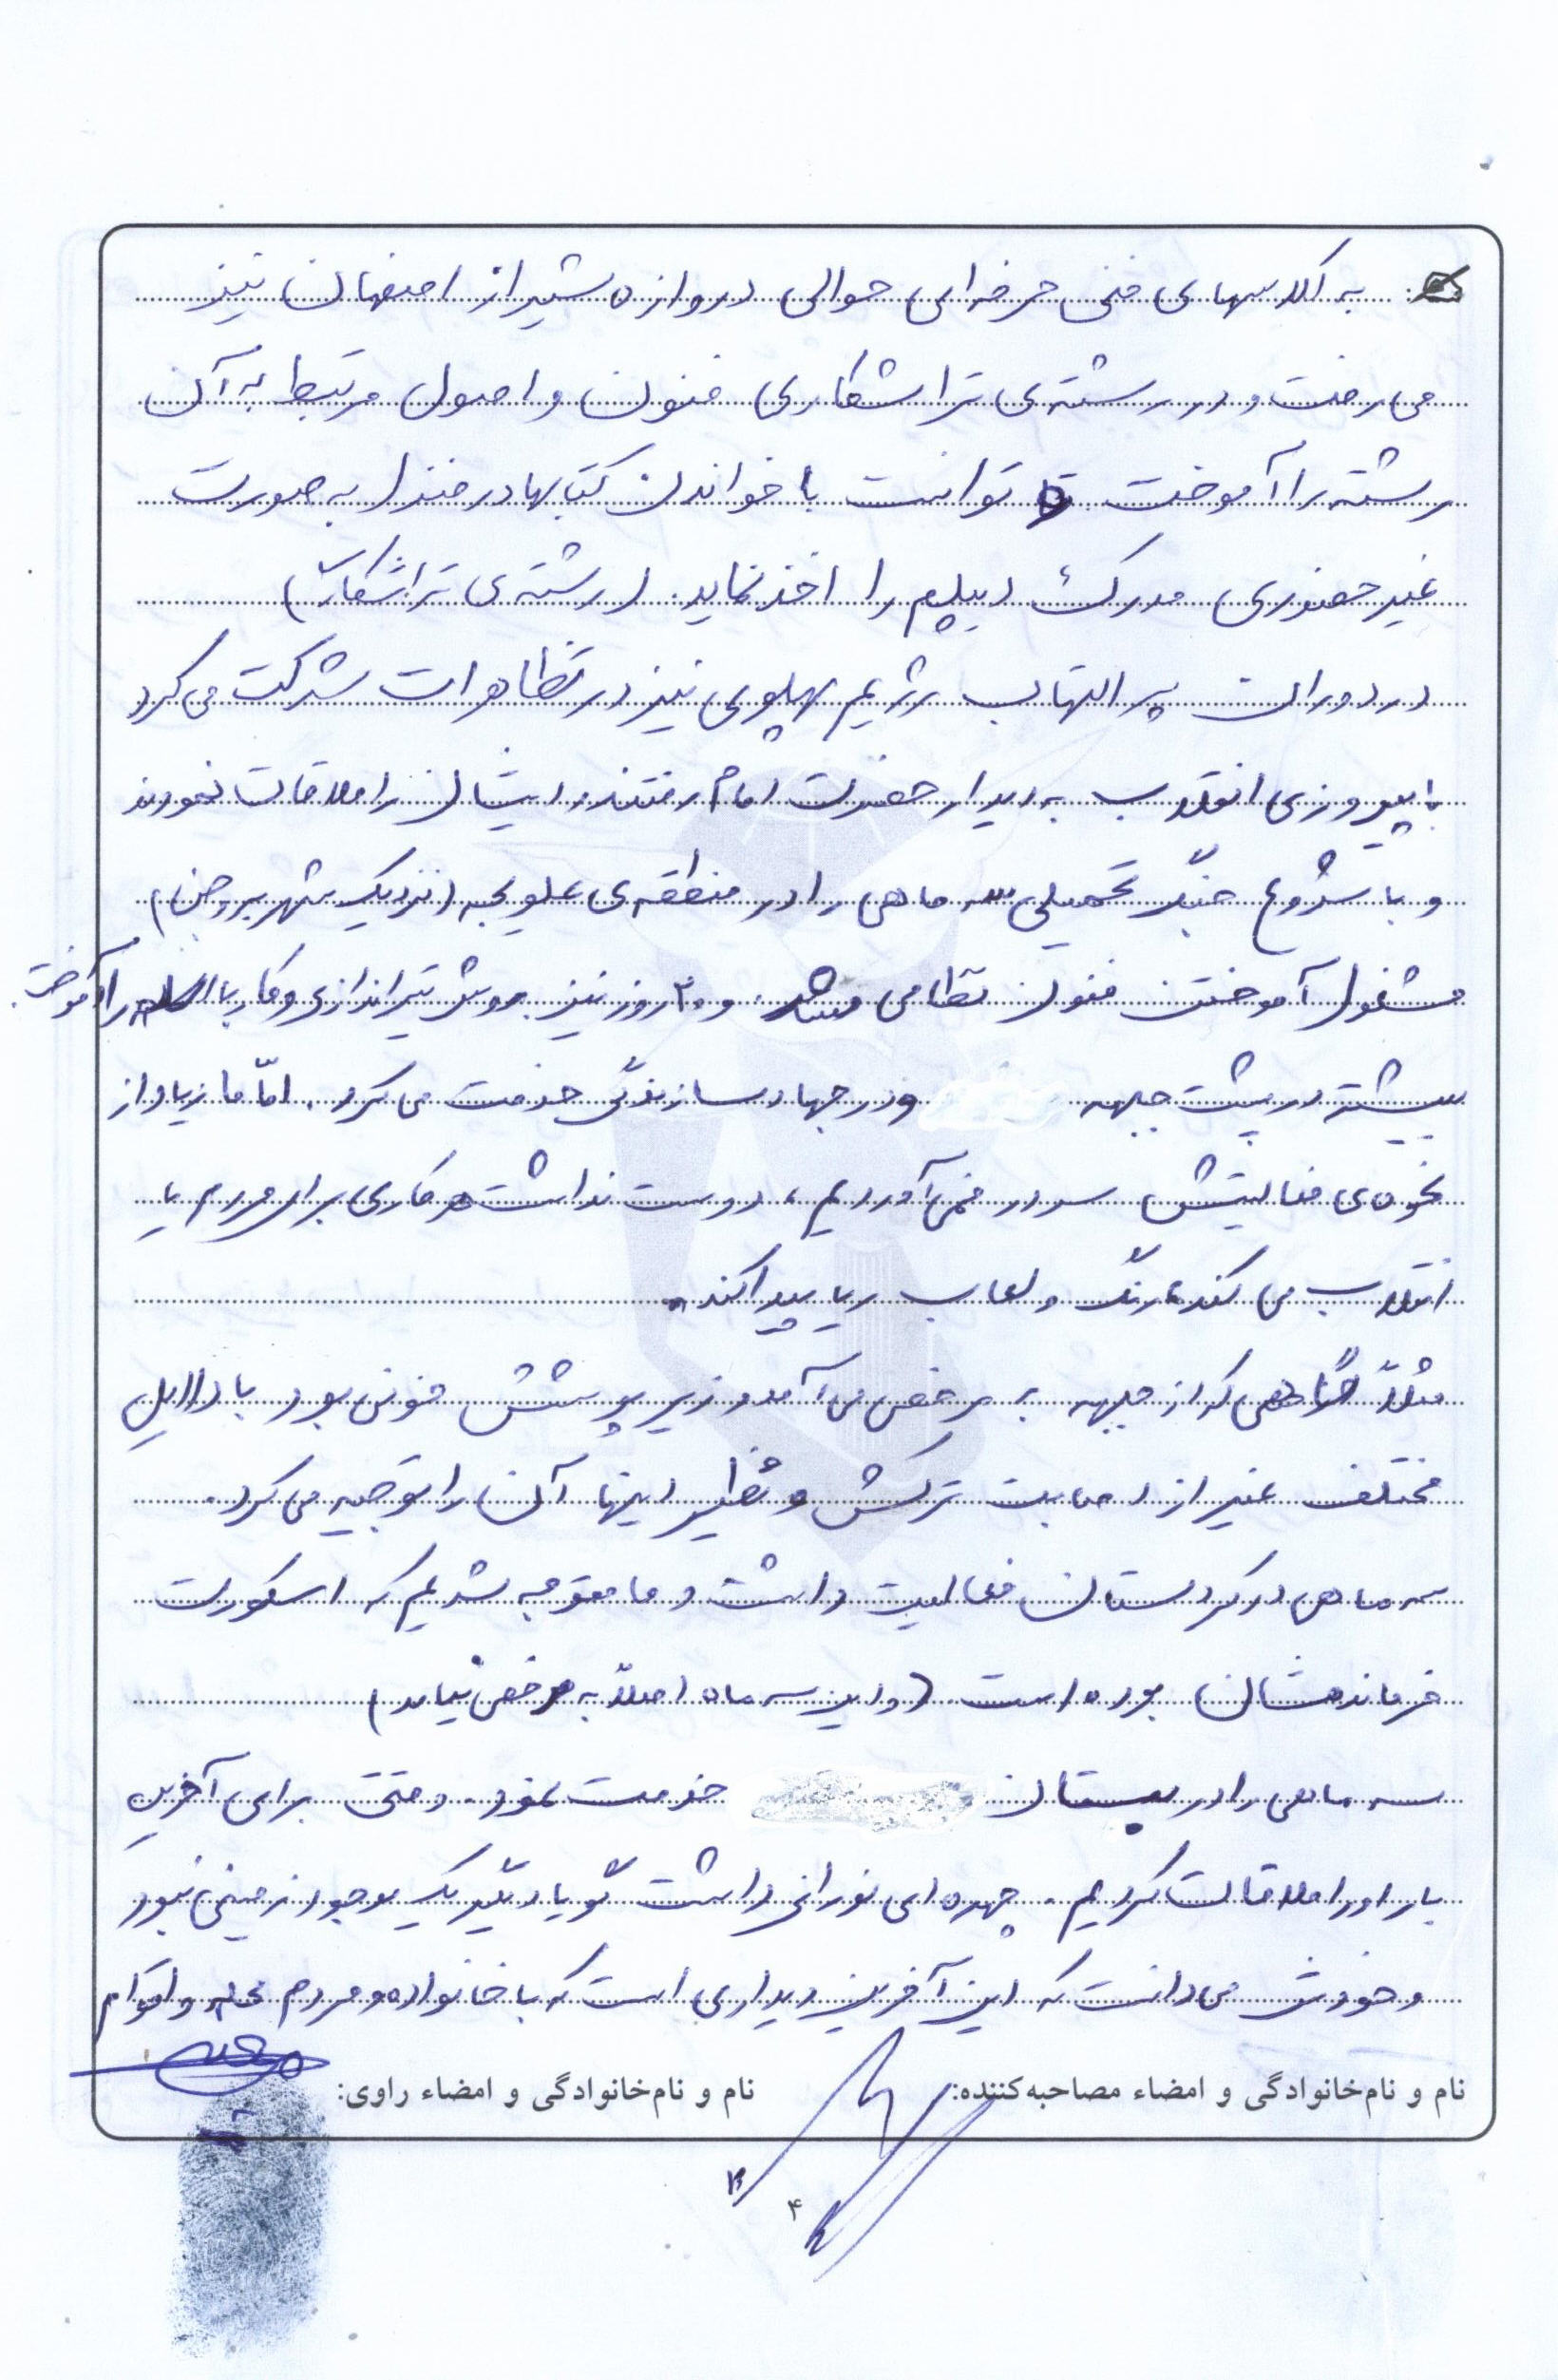 به کلاسهای فنی حرفه‌ای حوالی دروازه شیراز اصفهان نیز
می رفت و در رشته‌ی تراشکاری فنون و اصول مرتبط به آن
رشته را آموخت تا توانست با خواندن کتابها در منزل به صورت
غیر حضوری مدرک دیپلم را اخذ نماید. (رشته‌ی تراشکاری)
در دوران پر التهاب رژیم پهلوی نیز در تظاهرات شرکت می کرد
با پیروزی انقلاب به دیدار حضرت امام رفتند و ایشان را ملاقات نمودند
و با شروع جنگ تحمیلی سه ماهی را در منطقه‌ی علویجه (نزدیک شهر بروجن)
مشغول آموختن فنون نظامی شد. و ۲۰ روز نیز روش تیراندازی و کار با اسلحه را آموخت.
بیشتر در پشت جبهه و در جهاد سازندگی خدمت می کرد. امّا ما زیاد از
نحوه‌ی فعالیتش سر در نمی‌آوردیم، دوست نداشت هر کاری برای مردم یا
انقلاب می کند، رنگ و لعاب ریا پیدا کند.
مثلاً گاهی که از جبهه به مرخصی می آمد و زیر پوشش خونی بود با دلایل
مختلف غیر از اصابت ترکش و نظیر اینها آن را توجیه می کرد.
سه ماهی در کردستان فعالیت داشت و ما متوجه شدیم که اسکورت
فرمانده‌شان بوده است. (و این سه ماه اصلاً به مرخصی نیامد)
سه ماهی را در بستان خدمت نمود. وقتی برای آخرین
بار او را ملاقات کردیم. چهره‌ای نورانی داشت گویا دیگر یک موجود زمینی نبود
و خودش می دانست که این آخرین دیداری است که با خانواده و مردم محله و اقوام
نام و نام‌خانوادگی و امضاء مصاحبه‌کننده:
نام و نام‌خانوادگی و امضاء راوی:
۴